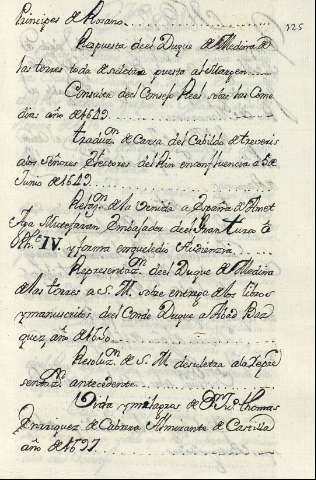 Principes de Rosano
125
Respuesta del Duque de Medina de
las torres toda de su letra puesta al Margen
Consulta del Consejo Real sobre las Come
dias año de 1649.
traduz.on de Carta del Cabildo de treveris
a los Señores Electores del Rin en confluencia a 5 de
Junio de 1649.
Relaz.on de la Venida a España de Amet
Aga Mutefarran Embajador del Gran turco a
Phe. IV. y forma en que le dio Audienzia
Representaz.on del Duque de Medina
de las torres a S. M. sobre entrega de los libros
y manuscritos del Conde Duque a Abad Baz
quez año de 1650.
Resoluz.on de S. M. de su letra a la Repre
sentaz.on antecedente
Vida y milagros de Dn. Ju.o thomas
Enrriquez de Cabrera Almirante de Castilla
año de 1697.